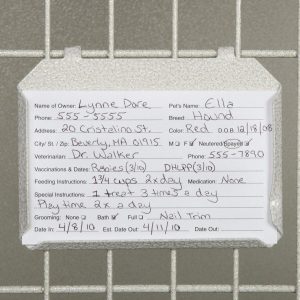 Name of Owner: Lynne Dore Pet's Name: Ella
Phone: 555-5555 Breed: Hound
Address: 20 Cristalino St. Color: Red DOB 12/18/08
City / St. / Zip: Beverly, MA 01915 M F Neutered/Spayed
Veterinarian: Dr. Walker Phone: 555-7890
Vaccinations & Dates: Rabies (3/10) DHLPP (3/10)
Feeding Instructions: 1 3/4 cups 2x day Medication: None
Special Instructions: 1 treat 3 times a day
Play time 2x a day
Grooming: None Bath Full Nail Trim
Date In: 4/8/10 Est. Date Out: 4/11/10 Date Out: